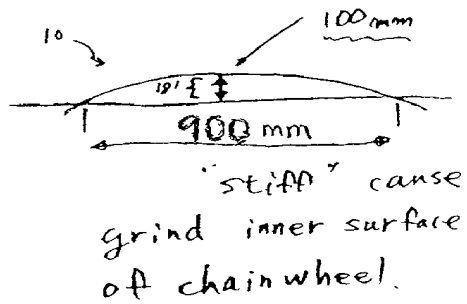 10
100mm
18'
900 mm
"stiff" cause
grind inner surface
of chainwheel.